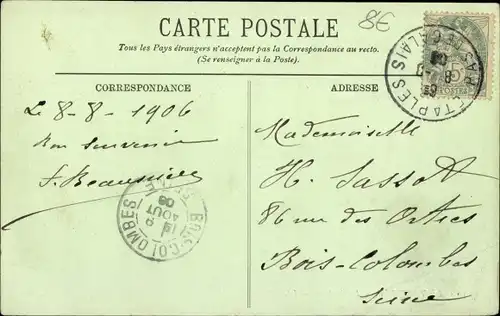 CARTE POSTALE
8€
Tous les Pays étrangers n'acceptent pas la Correspondance au recto.
(Se renseigner à la Poste).
CORRESPONDANCE
ADRESSE
ETAPLES
PAS DE CALAIS
Le 8-8-1906
Bon Souvenir
Mademoiselle
H. Sassot
86 rue des
Bois-Colombes
Seine
BOIS-COLOMBES
AOUT